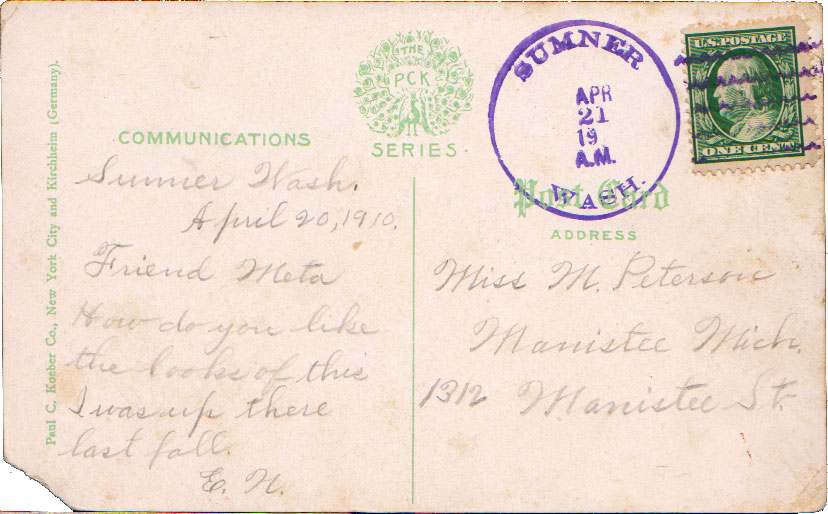 THE
PCK
SERIES
COMMUNICATIONS
Sumner Wash.
April 20, 1910.
Friend Meta
How do you like
the looks of this
I was up there
last fall.
E. N.
Paul C. Koeber Co., New York City and Kirchheim (Germany).
SUMNER
APR
21
19
A.M.
WASH.
U.S. POSTAGE
ONE CENT
Post Card
ADDRESS
Miss M. Peterson
Manistee Mich.
1312 Manistee St.